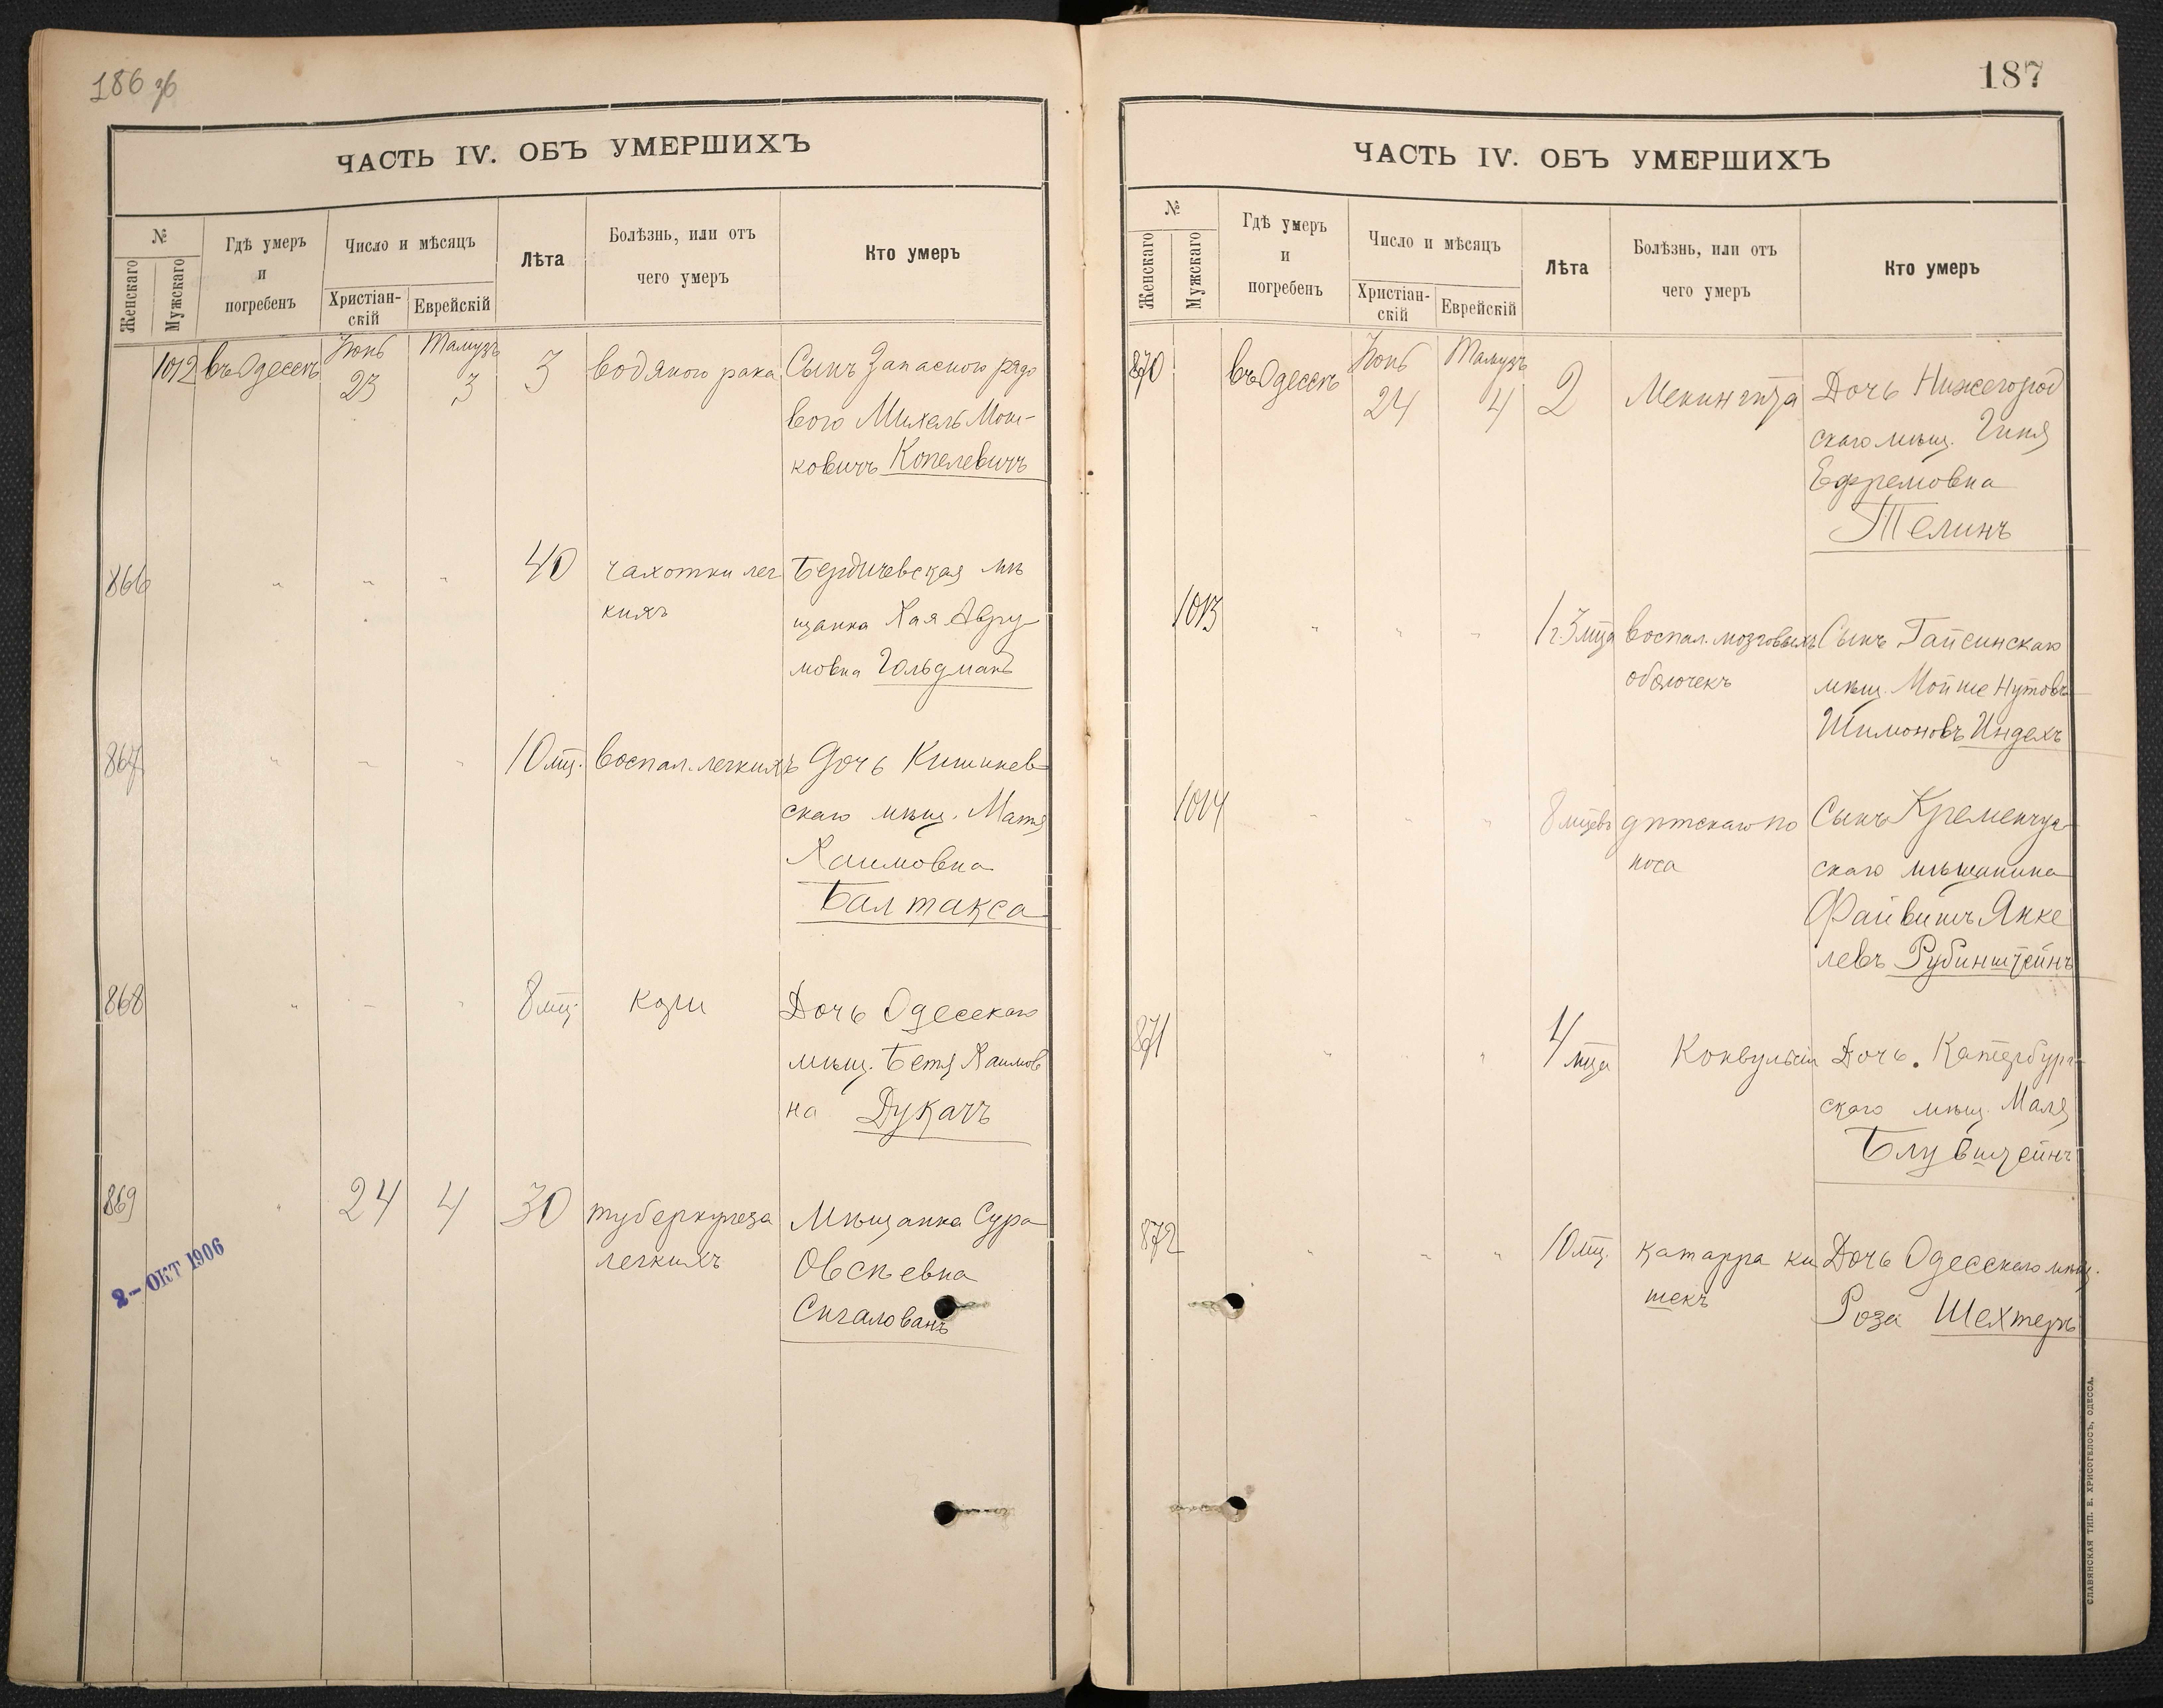 186 зб
ЧАСТЬ IV. ОБЪ УМЕРШИХЪ
№
Женскаго
Мужскаго
Гдѣ умеръ
и
погребенъ
Число и мѣсяцъ
Христіан-
скій
Еврейскій
Лѣта
Болѣзнь, или отъ
чего умеръ
Кто умеръ
1012 въ Одессѣ Іюнь 23 Тамузъ 3 3 водяного рака Сынъ Запасного рядо
вого Михель Мош-
ковичъ Копелевичъ
866 " " " 40 чахотки лег Бердичевская мѣ
кихъ щанка Хая Авру
мовна Гольдманъ
867 " " " 10 мц. воспал. легкихъ Дочь Кишинев
скаго мѣщ. Матя
Хаимовна
Балтакса
868 " " " 8 мц. кори Дочь Одесскаго
мѣщ. Бетя Хаимов
на Дукачъ
869 " 24 4 30 туберкулеза Мѣщанка Сура
легкихъ Овсѣевна
Сигалованъ
2-ОКТ 1906
187
ЧАСТЬ IV. ОБЪ УМЕРШИХЪ
№
Женскаго
Мужскаго
Гдѣ умеръ
и
погребенъ
Число и мѣсяцъ
Христіан-
скій
Еврейскій
Лѣта
Болѣзнь, или отъ
чего умеръ
Кто умеръ
870 въ Одессѣ Іюнь 24 Тамузъ 4 2 Менингита Дочь Нижегород
скаго мѣщ. Гиня
Ефремовна
Телинъ
1013 " " " 1 г. 3 мца воспал. мозговыхъ Сынъ Гайсинскаго
оболочекъ мѣщ. Мойше Нутовъ
Шимоновъ Индехъ
1014 " " " 8 мцевъ дѣтскаго по Сынъ Кременчуг
носа скаго мѣщанина
Файвишъ Янке
левъ Рубинштейнъ
871 " " 4 мца Конвульсіи Дочь. Катербург
скаго мѣщ. Маля
Блувштейнъ
872 " " " 10 мц. катарра ки Дочь Одесскаго мѣщ.
шекъ Роза Шехтеръ
СЛАВЯНСКАЯ ТИП. Е. ХРИСОГЕЛОСЪ, ОДЕССА.